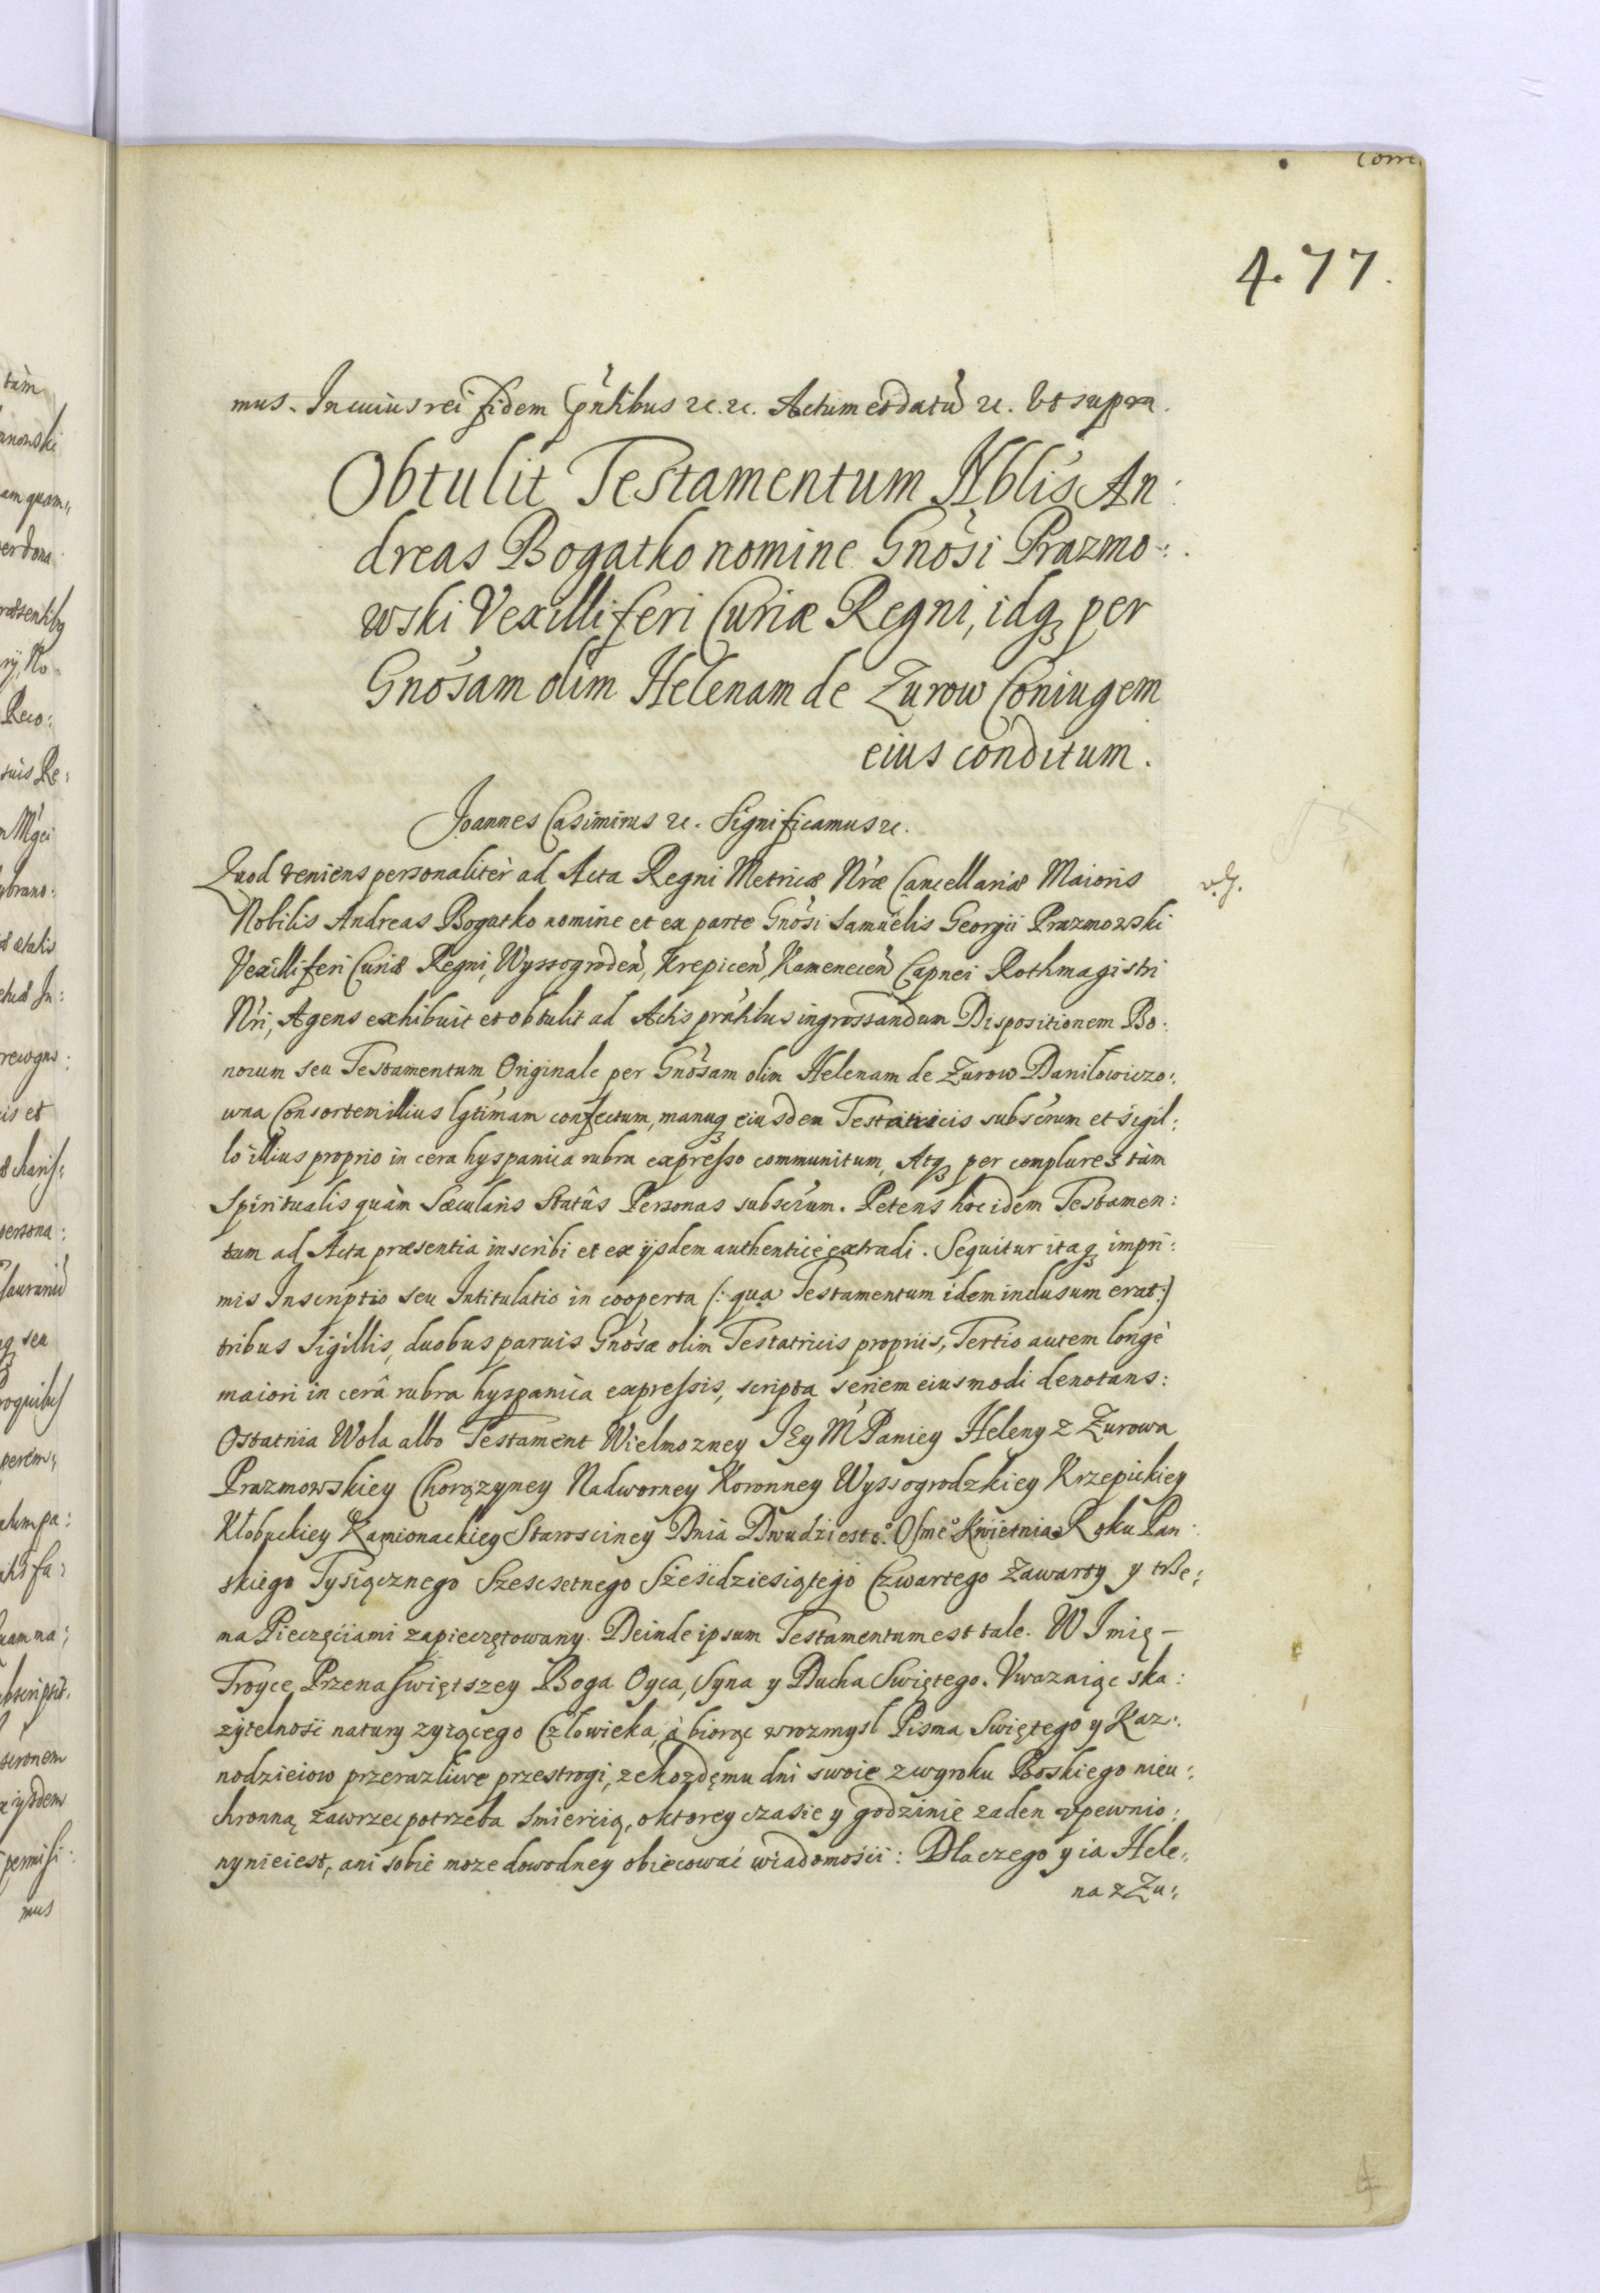 477.
mus. In cuius rei fidem pn̄tibus &c. &c. Actum et datū &c. Vt supra.
Obtulit Testamentum Nblis An:
dreas Bogatko nomine Gnosi Prazmo:
wski Vexilliferi Curiæ Regni, idq per
Gnosam olim Helenam de Zurow Coniugem
eius conditum.
Joannes Casimirus &c. Significamus &c.
Quod veniens personalitèr ad Acta Regni Metricæ Nræ Cancellariæ Maioris
Nobilis Andreas Bogatko nomine et ex parte Gnosi Samuelis Georgii Prazmowski
Vexilliferi Curiæ Regni, Wyssogroden, Krepicen, Kamenecen Capnei Rothmagistri
Nri, Agens exhibuit et obtulit ad Actis prntibus ingrossandum Dispositionem Bo:
norum seu Testamentum Originale per Gnosam olim Helenam de Zurow Daniłowiczo:
wna Consortem illius lgtimam confectum, manuq eiusdem Testatricis subscrum et sigil:
lo illius proprio in cera hyspanica rubra expresso communitum, Atq per complures tàm
Spiritualis quàm Sæcularis Statûs Personas subscrum. Petens hoc idem Testamen:
tum ad Acta præsentia inscribi et ex ijsdem authenticè extradi. Sequitur itaq impri:
mis Inscriptio seu Intitulatio in cooperta (: qua Testamentum idem inclusum erat:)
tribus Sigillis, duobus paruis Gnosæ olim Testatricis propriis, Tertio autem longè
maiori in cerâ rubra hyspanica expressis, scripta seriem eiusmodi denotans:
Ostatnia Wola albo Testament Wielmozney JEy M Paniey Heleny z Zurowa
Prazmowskiey Chorązyney Nadworney Koronney Wyssogrodzkiey Krzepickiey
Kłobuckiey Kamionackiey Starosciney Dnia Dwudzieste° Osme° Kwietnia Roku Pan:
skiego Tysiącznego Szescsetnego Sześćdziesiątego Czwartego Zawarty y trze:
ma Pieczęciami zapieczętowany. Deinde ipsum Testamentum est tale. W Imię –
Troyce Przenaswiętszey Boga Oyca, Syna y Ducha Swiętego. Vwazaiąc ska:
zytelność natury zyiącego Człowieka, à biorąc w rozmysł Pisma Swiętego y Kaz:
nodzieiow przerazliwe przestrogi, ze kozdęmu dni swoie z wyroku Boskiego nieu:
chronną zawrzec potrzeba smiercią, o ktorey czasie y godzinie zaden vpewnio:
ny nieiest, ani sobie moze dowodney obiecować wiadomości: Dlaczego y ia Hele:
na z Zu: